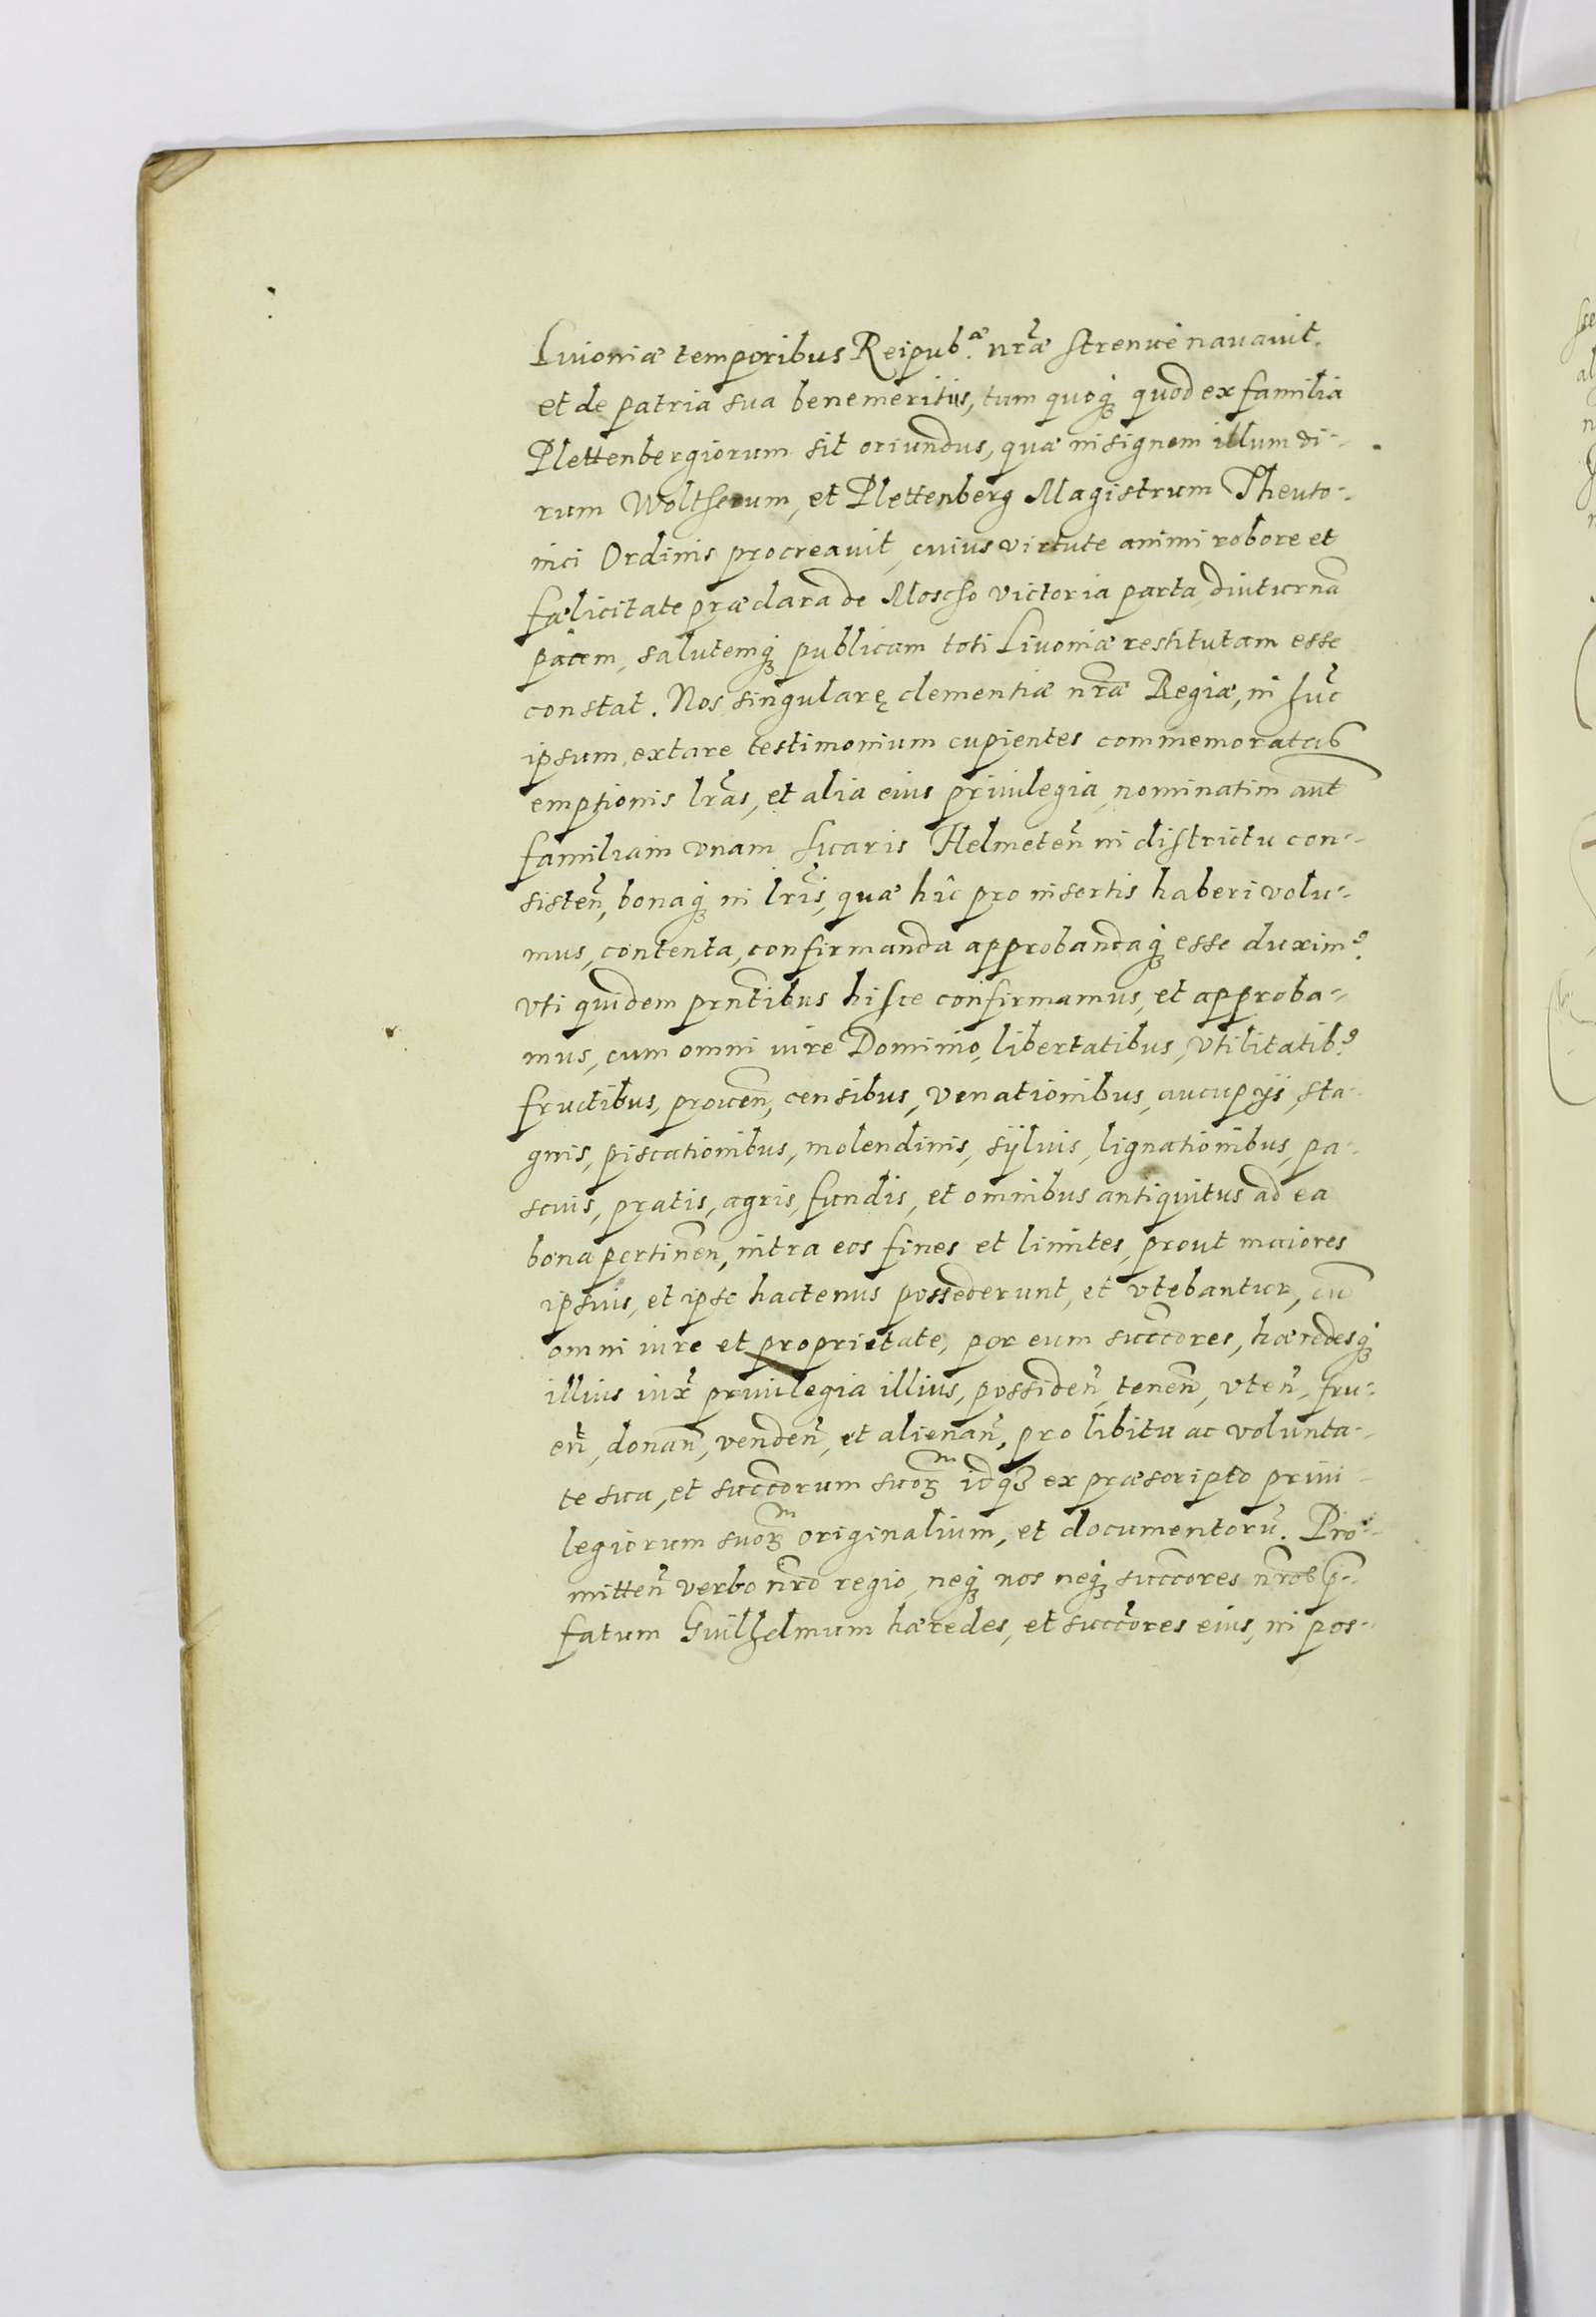 Liuoniæ temporibus Reipub.æ nr̃æ strenuè nauauit.
et de patria sua benemeritus, tum quoq́ꝫ quod ex familia
Plettenbergiorum sit oriundus, quæ insignem illum vi-
rum Woltherum, et Plettenberg Magistrum Theuto-
nici Ordinis procreauit, cuius virtute animi robore et
fælicitate præclara de Moscho victoria parta, diuturnã
pacem, salutemq́ꝫ publicam toti Liuoniæ restitutam esse
constat. Nos singularę clementiæ nr̃æ Regiæ, in huc̃
ipsum, extare testimonium cupientes commemoratas
emptionis lr̃as, et alia eius priuilegia, nominatim aut̃
familiam vnam sucaris Helmeteñ in districtu con-
sisteñ, bonaq́ꝫ in lr̃is, quæ hîc pro insertis haberi volu-
mus, contenta, confirmanda approbandaq́ꝫ esse duxim⁹.
vti quidem prñtibus hisce confirmamus, et approba-
mus, cum omni iure Dominio, libertatibus, vtilitatib⁹.
fructibus, proueñ, censibus, venationibus, aucupijs, sta-
gnis, piscationibus, molendinis, syluis, lignationibus, pa-
scuis, pratis, agris, fundis, et omnibus antiquitus ad ea
bona pertineñ, intra eos fines et limites, prout maiores
ipsius, et ipse hactenus possederunt, et vtebantur, cũ
omni iure et proprietate, per eum succores, hæredesq́ꝫ
illius iux̃ priuilegia illius, possideñ, teneñ, vteñ, fru-
eñ, donañ, vendeñ, et alienañ, pro libitu ac volunta-
te sua, et succorum suoꝝm idqꝫ ex præscripto priui-
legiorum suoꝝm originalium, et documentorũ. Pro-
mitteñ verbo nr̃o regio, neq́ꝫ nos neq́ꝫ succores nr̃os p̃-
fatum Guilhelmum hæredes, et succores eius, in pos-